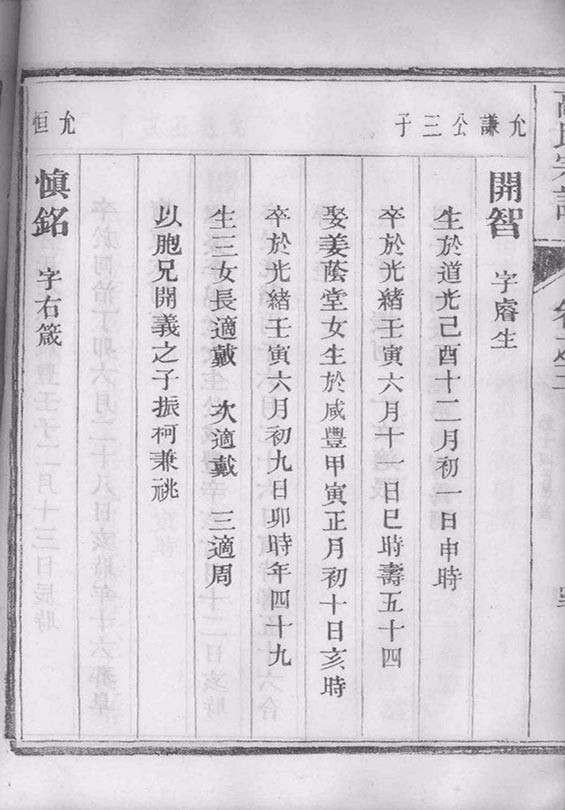 高氏宗譜 卷之三
允謙公三子
開智 字睿生
生於道光己酉十二月初一日申時
卒於光緒壬寅六月十一日巳時壽五十四
娶姜蔭堂女生於咸豐甲寅正月初十日亥時
卒於光緒壬寅六月初九日卯時年四十九
生三女長適戴 次適戴 三適周
以胞兄開義之子振柯兼祧
允恒
慎銘 字右箴